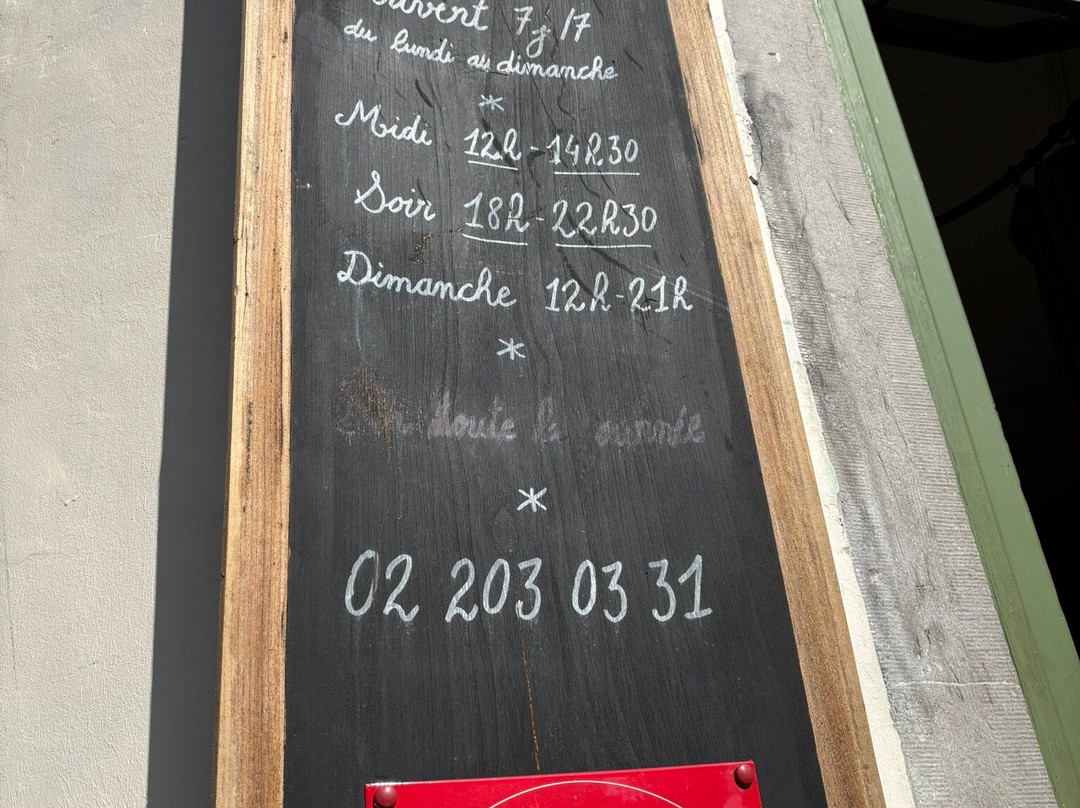 Ouvert 7j/7
du lundi au dimanche
*
Midi 12h-14h30
Soir 18h-22h30
Dimanche 12h-21h
*
toute la journée
*
02 203 03 31